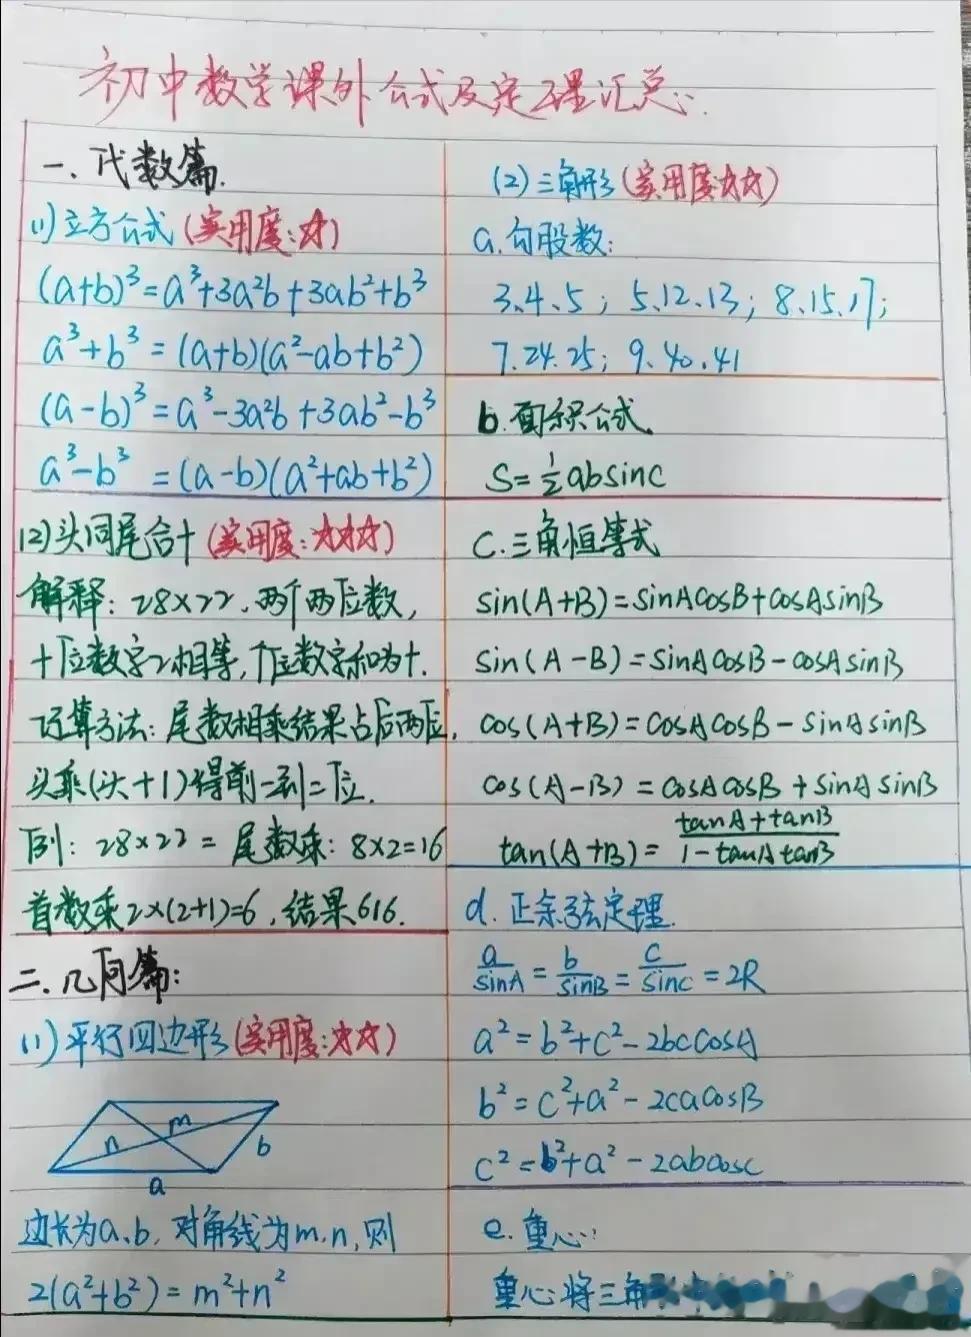 初中数学课外公式及定理汇总:
一.代数篇.
(1)立方公式(实用度:☆)
(a+b)³=a³+3a²b+3ab²+b³
a³+b³=(a+b)(a²-ab+b²)
(a-b)³=a³-3a²b+3ab²-b³
a³-b³=(a-b)(a²+ab+b²)
(2)头同尾合十(实用度:☆☆☆)
解释:28×22.两个两位数,
十位数字相等,个位数字和为十.
运算方法:尾数相乘结果占后两位,
头乘(头+1)得前一到二位.
例:28×22=尾数乘:8×2=16
首数乘2×(2+1)=6,结果616.
二.几何篇:
(1)平行四边形(实用度:☆☆)
n
m
b
a
边长为a、b,对角线为m.n,则
2(a²+b²)=m²+n²
(2)三角形(实用度☆☆)
a.勾股数:
3.4.5;5.12.13;8.15.17;
7.24.25;9.40.41
b.面积公式
S=½absinC
C.三角恒等式
sin(A+B)=sinAcosB+cosAsinB
sin(A-B)=sinAcosB-cosAsinB
cos(A+B)=cosAcosB-sinAsinB
cos(A-B)=cosAcosB+sinAsinB
tan(A+B)=(tanA+tanB)/(1-tanAtanB)
d.正余弦定理.
a/sinA=b/sinB=c/sinC=2R
a²=b²+c²-2bccosA
b²=c²+a²-2cacosB
c²=b²+a²-2abcosc
e.重心:
重心将三角